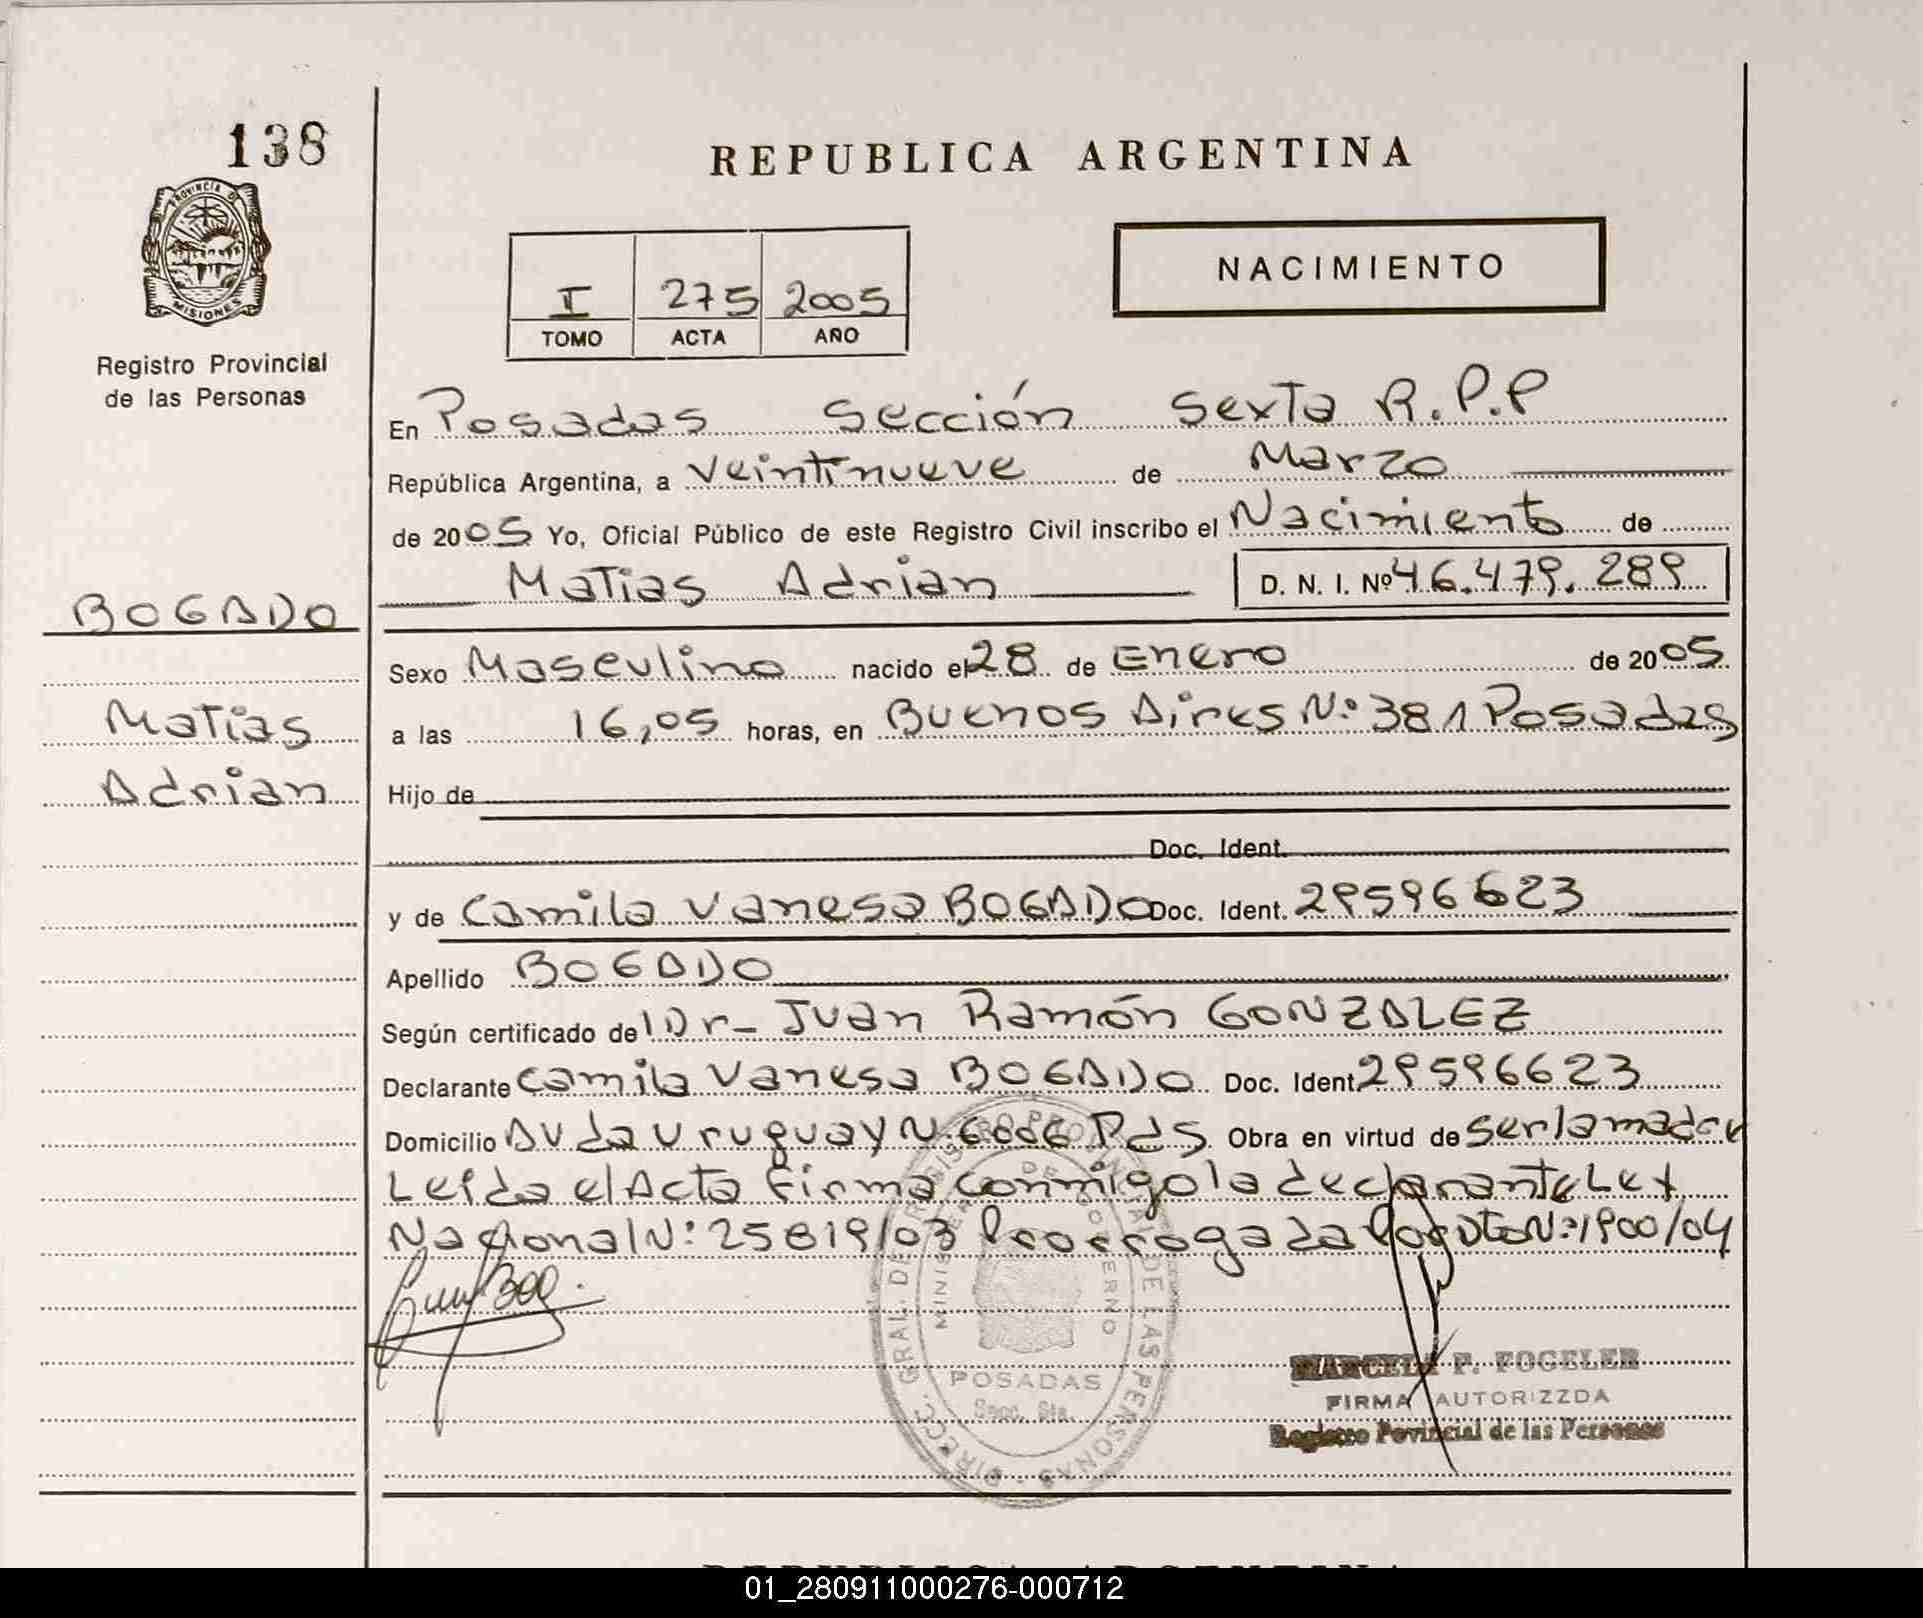 138
PROVINCIA DE
MISIONES
Registro Provincial
de las Personas
REPUBLICA ARGENTINA
I 275 2005
TOMO ACTA AÑO
NACIMIENTO
En Posadas Sección Sexta R.P.P
República Argentina, a Veintinueve de Marzo
de 2005 Yo, Oficial Público de este Registro Civil inscribo el Nacimiento de
Matias Adrian D. N. I. Nº 46.479.289
BOGADO
Matias
Adrian
Sexo Masculino nacido el 28 de Enero de 2005
a las 16,05 horas, en Buenos Aires Nº 381 Posadas
Hijo de
Doc. Ident.
y de Camila Vanesa BOGADO Doc. Ident. 29596623
Apellido BOGADO
Según certificado de Dr- Juan Ramón GONZALEZ
Declarante Camila Vanesa BOGADO Doc. Ident 29596623
Domicilio Avda Uruguay N: Pds. Obra en virtud de ser la madre
Leída el Acta firma conmigo la declarante Ley
Nacional N: 25819/03 Prorrogada por Dto N:1900/04
DIRECC. GRAL. DE REGISTRO PROVINCIAL DE LAS PERSONAS
MINISTERIO DE GOBIERNO
POSADAS
Secc. 6ta.
MARCELA F. FOGELER
FIRMA AUTORIZZDA
Registro Povincial de las Personas
01_280911000276-000712